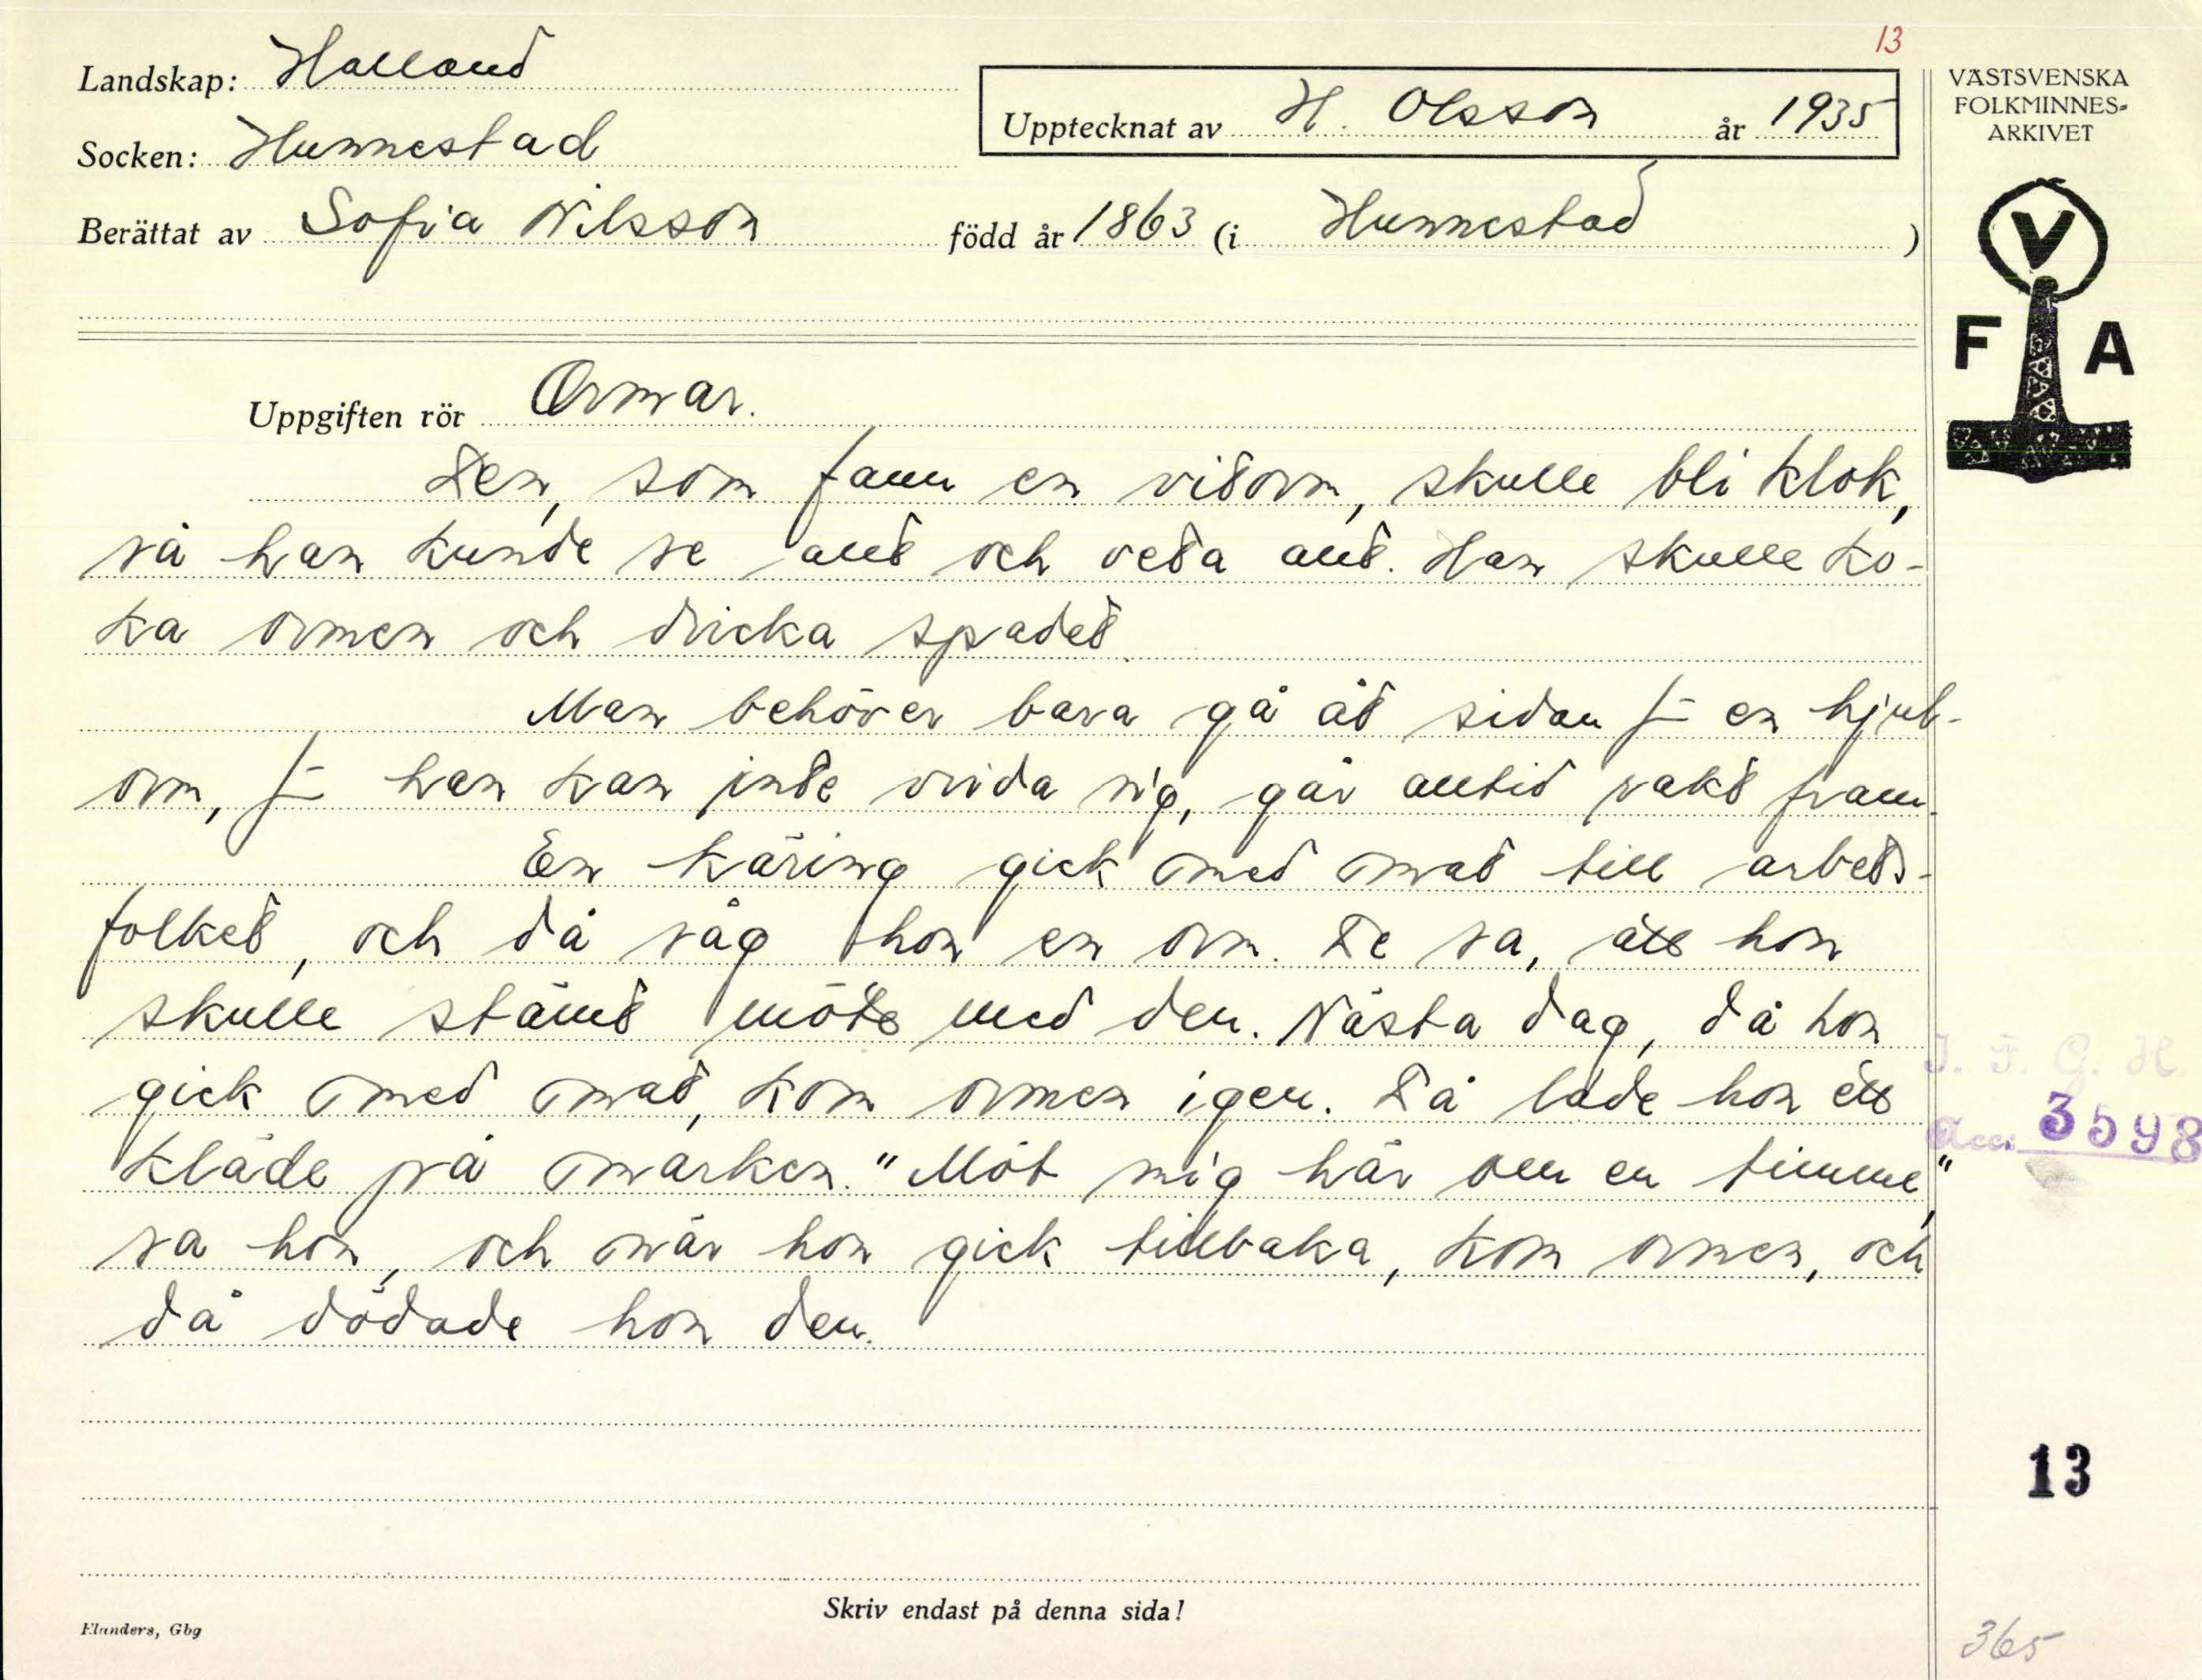 13
Landskap: Halland
Upptecknat av H. Olsson år 1935
Socken: Hunnestad
Berättat av Sofia Nilsson född år 1863 (i Hunnestad )
VÄSTSVENSKA
FOLKMINNES-
ARKIVET
V
F A
Uppgiften rör Ormar.
Den, som fann en vitorm, skulle bli klok,
så han kunde se allt och veta allt. Han skulle ko-
ka ormen och dricka spadet.
Man behöver bara gå åt sidan f- en hjul-
orm, f- han kan inte vrida sig, går alltid rakt fram.
En käring gick med mat till arbets-
folket, och då såg hon en orm. De sa, att hon
skulle stämt möte med den. Nästa dag, då hon
gick med mat, kom ormen igen. Då lade hon ett
kläde på marken. "Möt mig här om en timme",
sa hon, och när hon gick tillbaka, kom ormen, och
då dödade hon den.
I. F. G. H.
Acc. 3598
13
Skriv endast på denna sida!
Elanders, Gbg
365